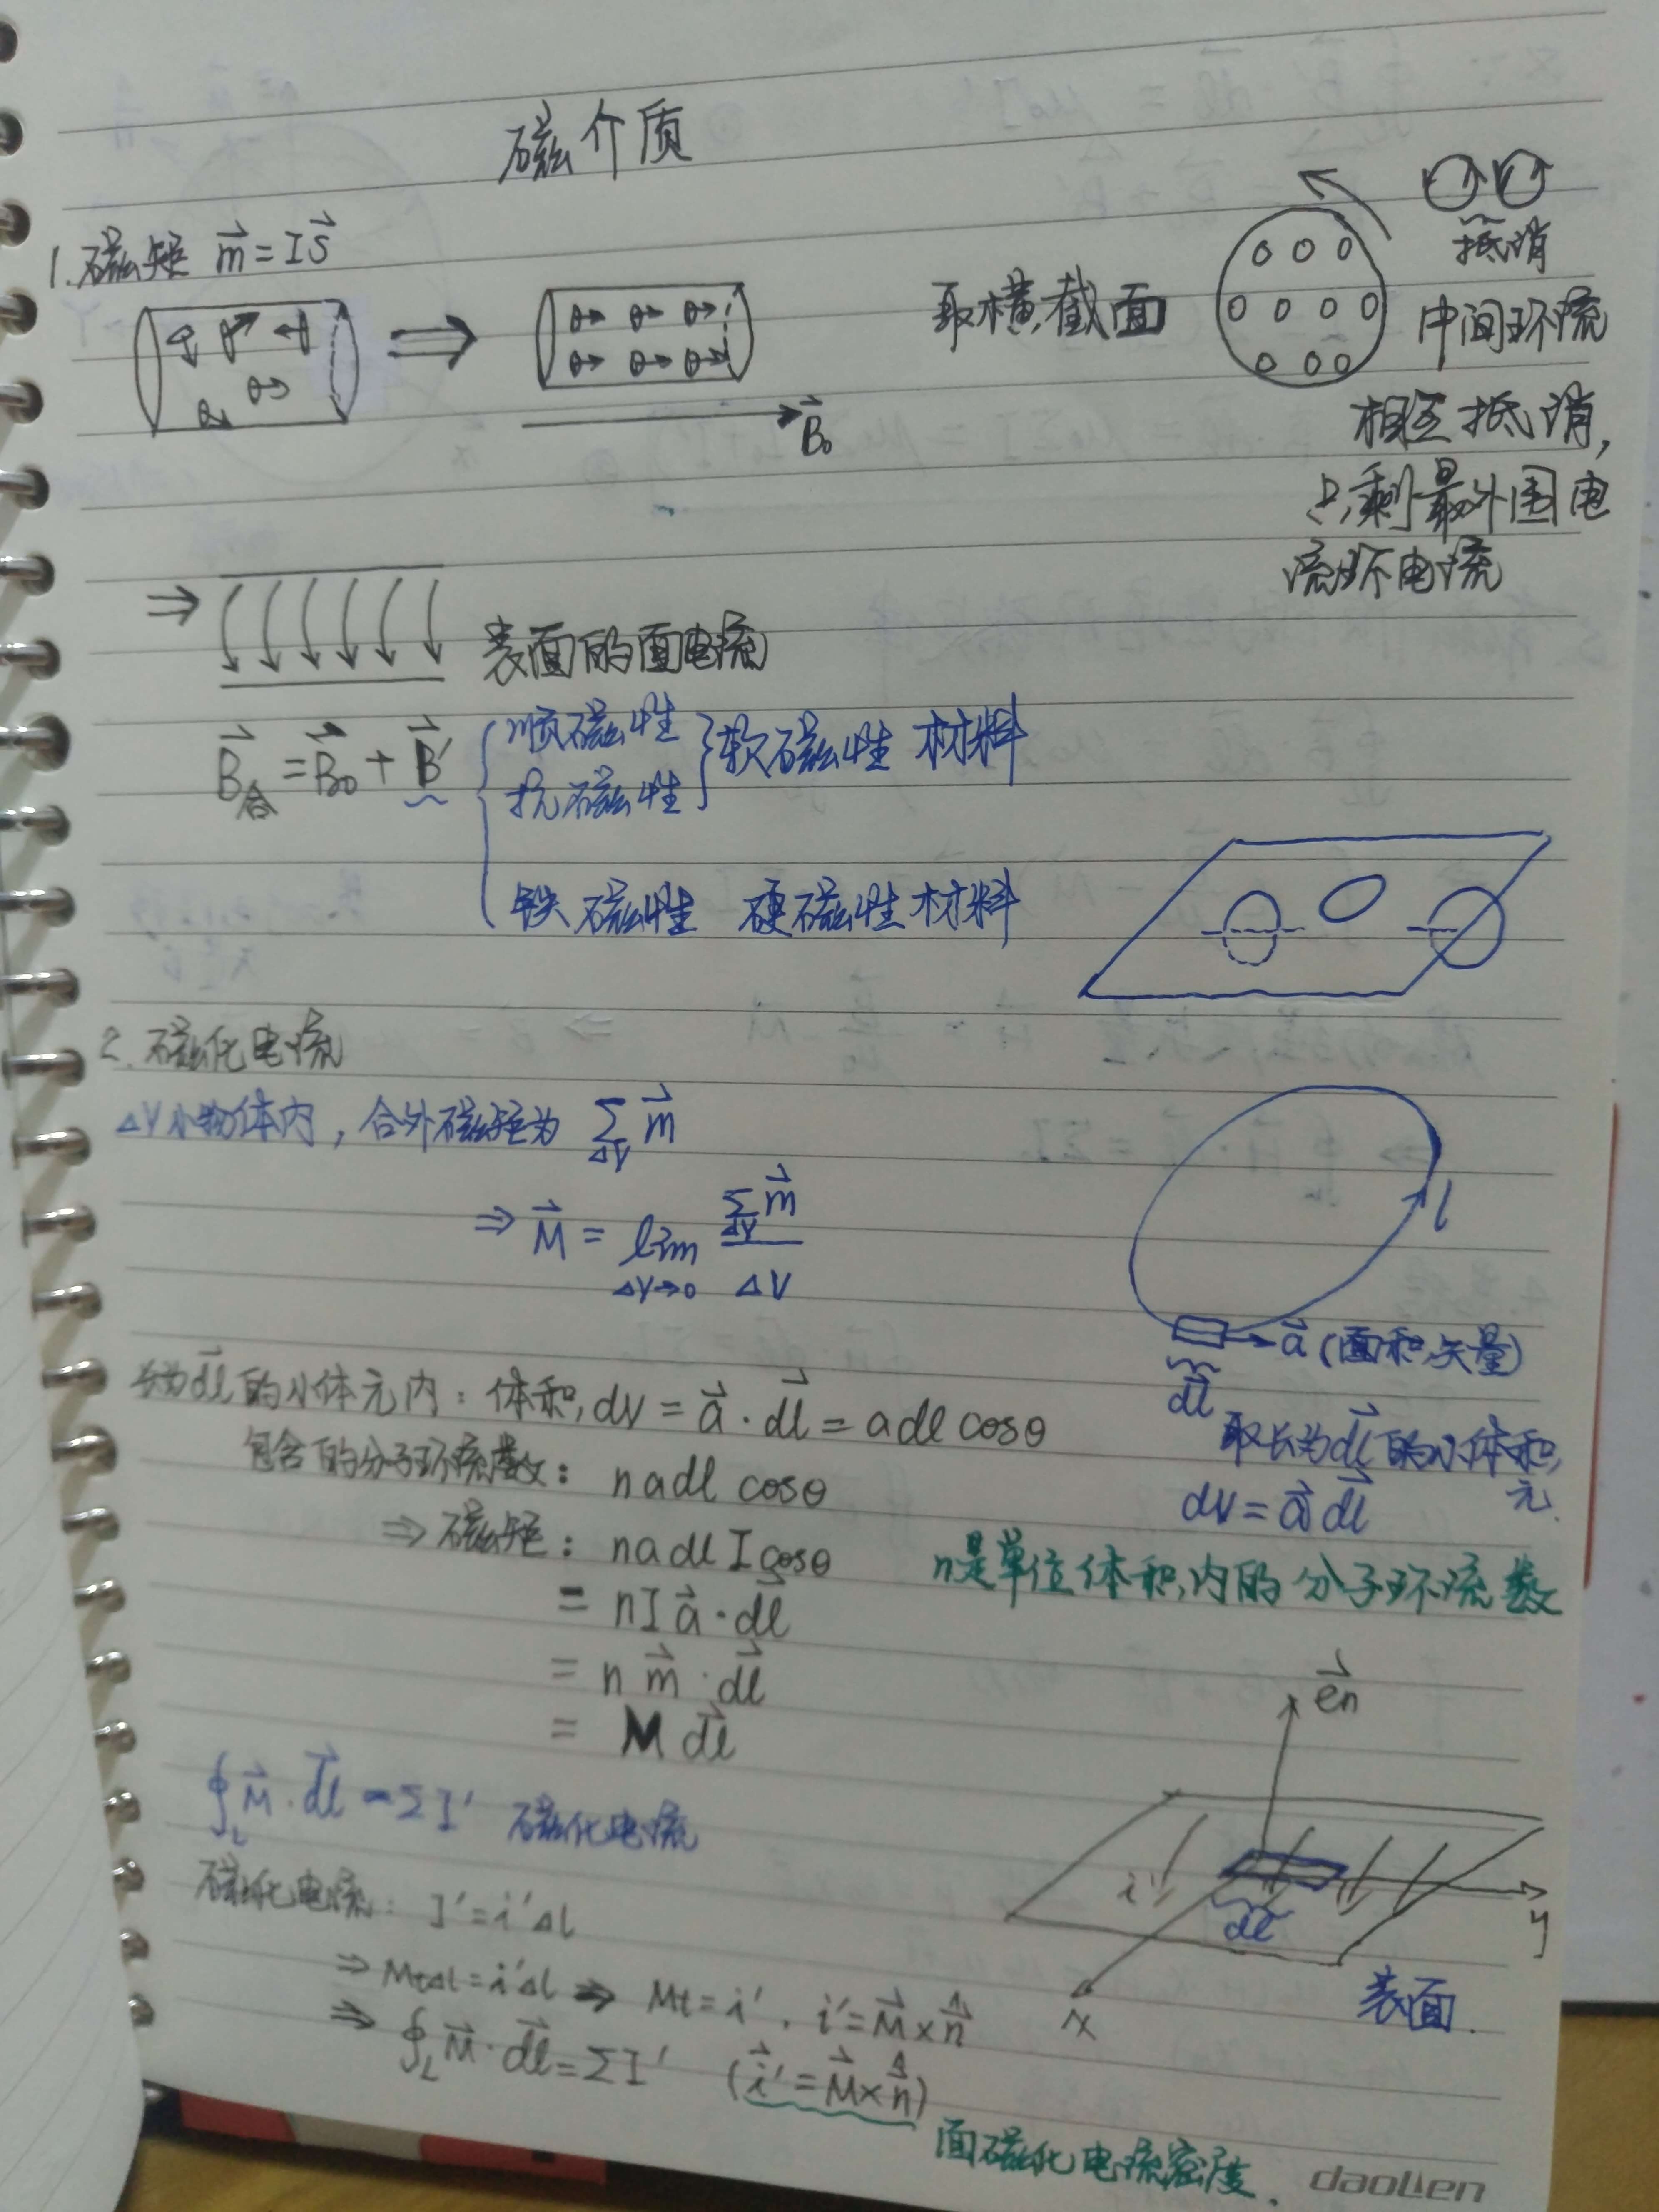 磁介质
1. 磁矩 m⃗ = I S⃗
B⃗₀
取横截面
抵消
中间环流
相互抵消,
只剩最外围电
流环电流
⇒ 表面的面电流
B⃗合 = B⃗₀ + B⃗′ { 顺磁性 } 软磁性 材料
抗磁性
铁磁性 硬磁性材料
2. 磁化电流
ΔV小物体内, 合外磁矩为 Σ_ΔV m⃗
⇒ M⃗ = lim_ΔV→0 Σ_ΔV m⃗ / ΔV
l
a⃗ (面积矢量)
dl⃗
取长为dl⃗的小体积元.
dV = a⃗ dl⃗
长为dl⃗的小体元内: 体积, dV = a⃗ · dl⃗ = a dl cosθ
包含的分子环流数: n a dl cosθ
⇒ 磁矩: n a dl I cosθ
n是单位体积内的分子环流数
= n I a⃗ · dl⃗
= n m⃗ · dl⃗
= M dl⃗
e⃗n
∮_L M⃗ · dl⃗ = Σ I′ 磁化电流
i′
dl
y
x
表面.
磁化电流: I′ = i′Δl
⇒ MtΔl = i′Δl ⇒ Mt = i′, i′ = M⃗ × n̂
⇒ ∮_L M⃗ · dl⃗ = Σ I′ (i⃗′ = M⃗ × n̂)
面磁化电流密度.
daolien